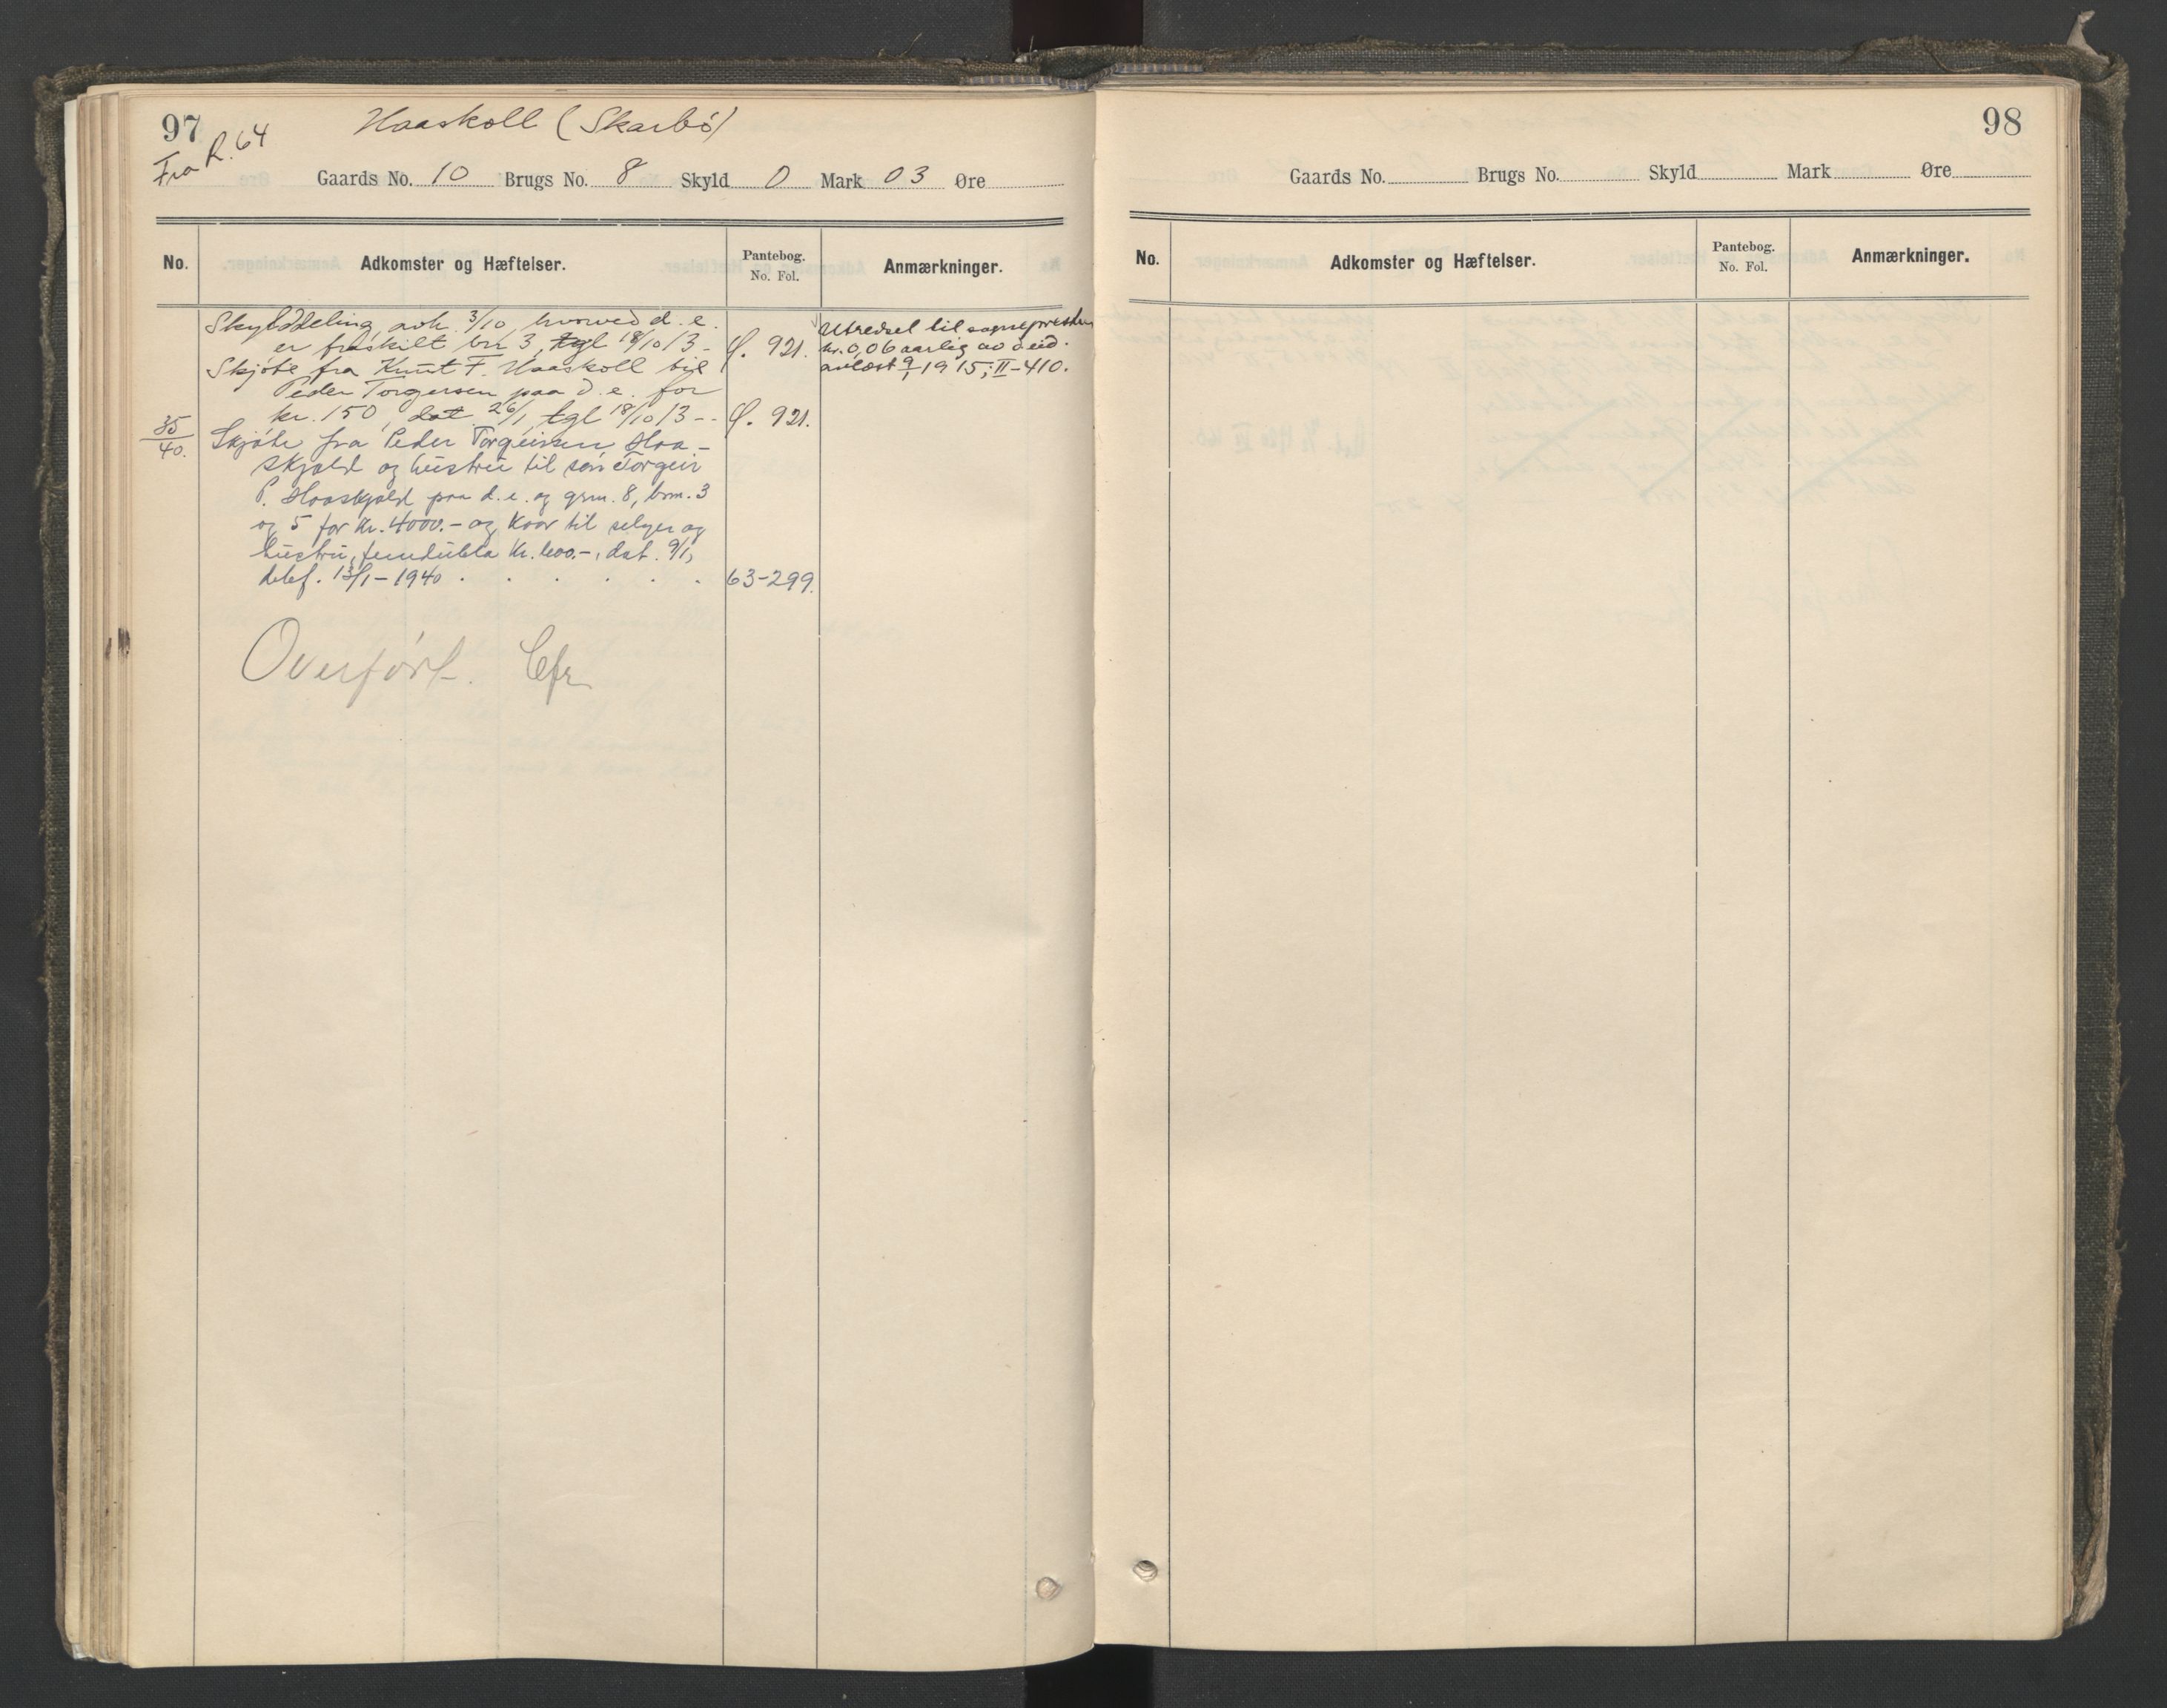 97
Fra R. 64
Haaskoll (Skarbö)
Gaards No. 10 Brugs No. 8 Skyld 0 Mark 03 Øre
No. Adkomster og Hæftelser. Pantebog. No. Fol. Anmærkninger.
Skylddeling, avh. 3/10, hvorved d. e.
er fraskilt br. 3, tgl 18/10 13 - P. 921.
Skjöte fra Knut F. Haaskoll til
Peder Torgersen paa d. e. for
kr. 150, dat. 26/1, tgl 18/10 13 - - P. 921.
Utredsel til sognepresten
kr. 0,06 aarlig av d. eid.
avløst 9/1 1915; II-410.
35/40. Skjöte fra Peder Torgeirsen Haa-
skjold og hustru til sön Torgeir
P. Haaskjold paa d. e. og grn. 8, brn. 3
og 5 for kr. 4000.- og kaar til selger og
hustru, femdubla Kr. 600.-, dat. 9/1,
dbkf. 13/1 - 1940 . . . . . . 63-299.
Overført. Cfr
98
Gaards No. Brugs No. Skyld Mark Øre
No. Adkomster og Hæftelser. Pantebog. No. Fol. Anmærkninger.